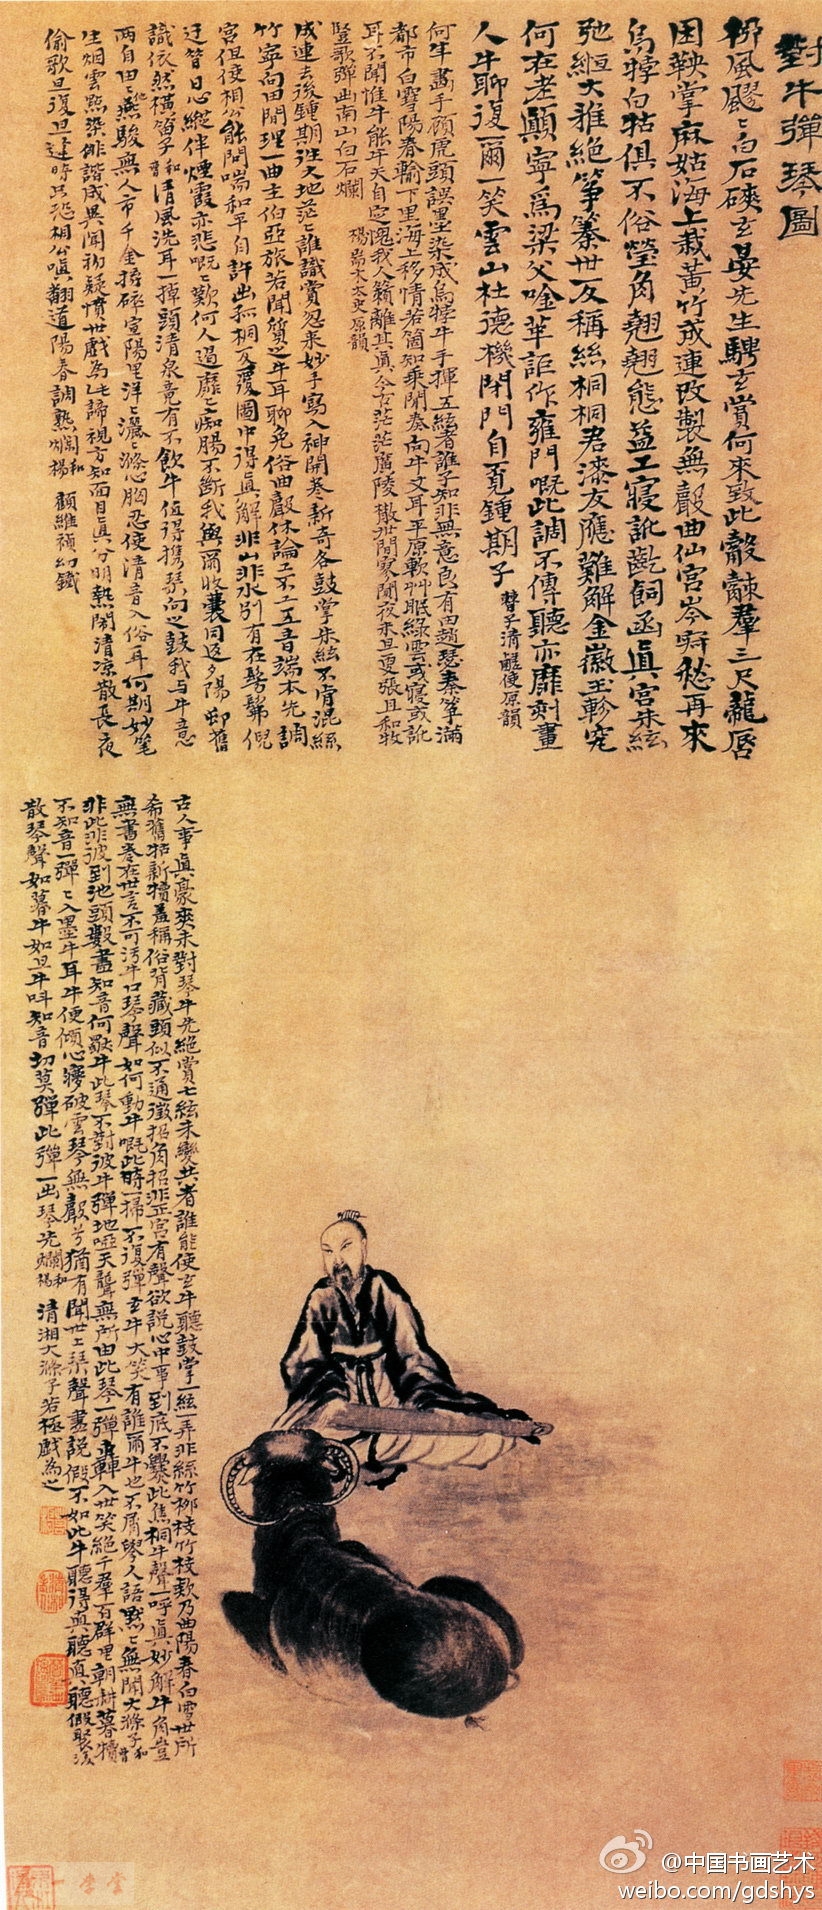 對牛彈琴圖
柳風颸〻白石磢玄晏先生騁玄賞何來致此觳觫羣三尺龍唇
困鞅掌麻姑海上栽黃竹成連改製無聲曲仙宮岑時愁再來
烏犉白牯俱不俗瑩角翹翹態益工寢訛齕飼函真宮朱絃
弛絙大雅絕箏篆世反稱絲桐桐君漆友應難解金徽玉軫究
何在老顛寧為梁父唫莘詎作雍門嘅此調不傳聽亦靡刻畫
人牛聊復爾一笑雲山杜德機閉門自覓鍾期子 曹子清鹺使原韻
何年畫手顧虎頭誤墨染成烏牸牛手揮五絃者誰子知非無意良有由趙瑟秦箏滿
都市白雪陽春輸下里海上移情若箇知乘閒奏向牛叉耳平原軟艸眠綠雲或寢或訛
耳不聞惟牛能牛天自定愧我人籟離其真今古茫茫廣陵散世間寥闃夜未旦更張且和牧
豎歌彈出南山白石爛 楊耑木太史原韻
成連去後鍾期往大地茫〻誰識賞忽來妙手寫入神開卷新奇各鼓掌朱絃不肯混絲
竹寧向田間理一曲主伯亞旅若聞質之牛耳聊免俗曲聲休論工不工五音端本先調
宮但使相公能問喘和平自許出孤桐反覆圖中得真解非山非水別有在髣髴倪
迂筲日心縱伴煙霞亦悲嘅〻歎何人過靡〻痴腸不斷我與爾收囊同返夕陽邨舊
識依然橫笛子 和曹 清風洗耳一掉頭清泉竟有不飲牛值得携琴向之鼓我與牛意
兩自由〻燕駿無人市千金擲碎宣陽里洋〻灑〻滌心胸忍使清音入俗耳何期妙笔
生烟雲點染俳諧成異聞初疑憤世戲為此諦視方知面目真分明熱鬧清凉散長夜
偷歌旦復旦逢時只恐相公嗔翻道陽春調熟爛 和楊 顧維禎幻鐵
古人事真豪爽未對琴牛先絕賞七絃未變共者誰能使玄牛聽鼓掌一絃一弄非絲竹柳枝竹枝欵乃曲陽春白雪世所
希舊牯新犢羞稱俗背藏頭似不通徵招角招非正宮有聲欲說心中事到底不爨此焦桐牛聲一呼真妙解牛角豈
無書卷在世言不可污牛口琴聲如何動牛嘅此時一掃不復彈玄牛大笑有誰爾牛也不屑學人語默〻無聞大滌子 和曹
非此非彼到池頭數盡知音何獨牛此琴不對彼牛彈地啞天聾無所由此琴一彈轟入世笑絕千羣百群里朝耕暮犢
不知音一彈〻入墨牛耳牛便傾心夢破雲琴無聲兮猶有聞世上琴聲盡說假不如此牛聽得真聽真聽假聚復
散琴聲如暮牛如旦牛叫知音切莫彈此彈一出琴先爛 和楊 清湘大滌子若極戲為之
@中国书画艺术
weibo.com/gdshys